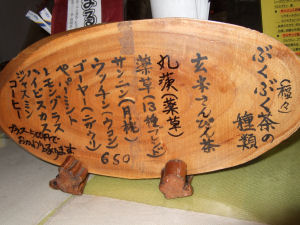 ぶくぶく茶の
(種々)
種類
玄米さんぴん茶
丸茨(薬草)
薬草13種ブレンド
サンニン(月桃)
ウッチン(ウコン)
ゴーヤー(ニガウリ)
650
ペパーミント
レモングラス
ハイビスカス
ジャスミン
コーヒー
プラス100円で
おかわり承ります